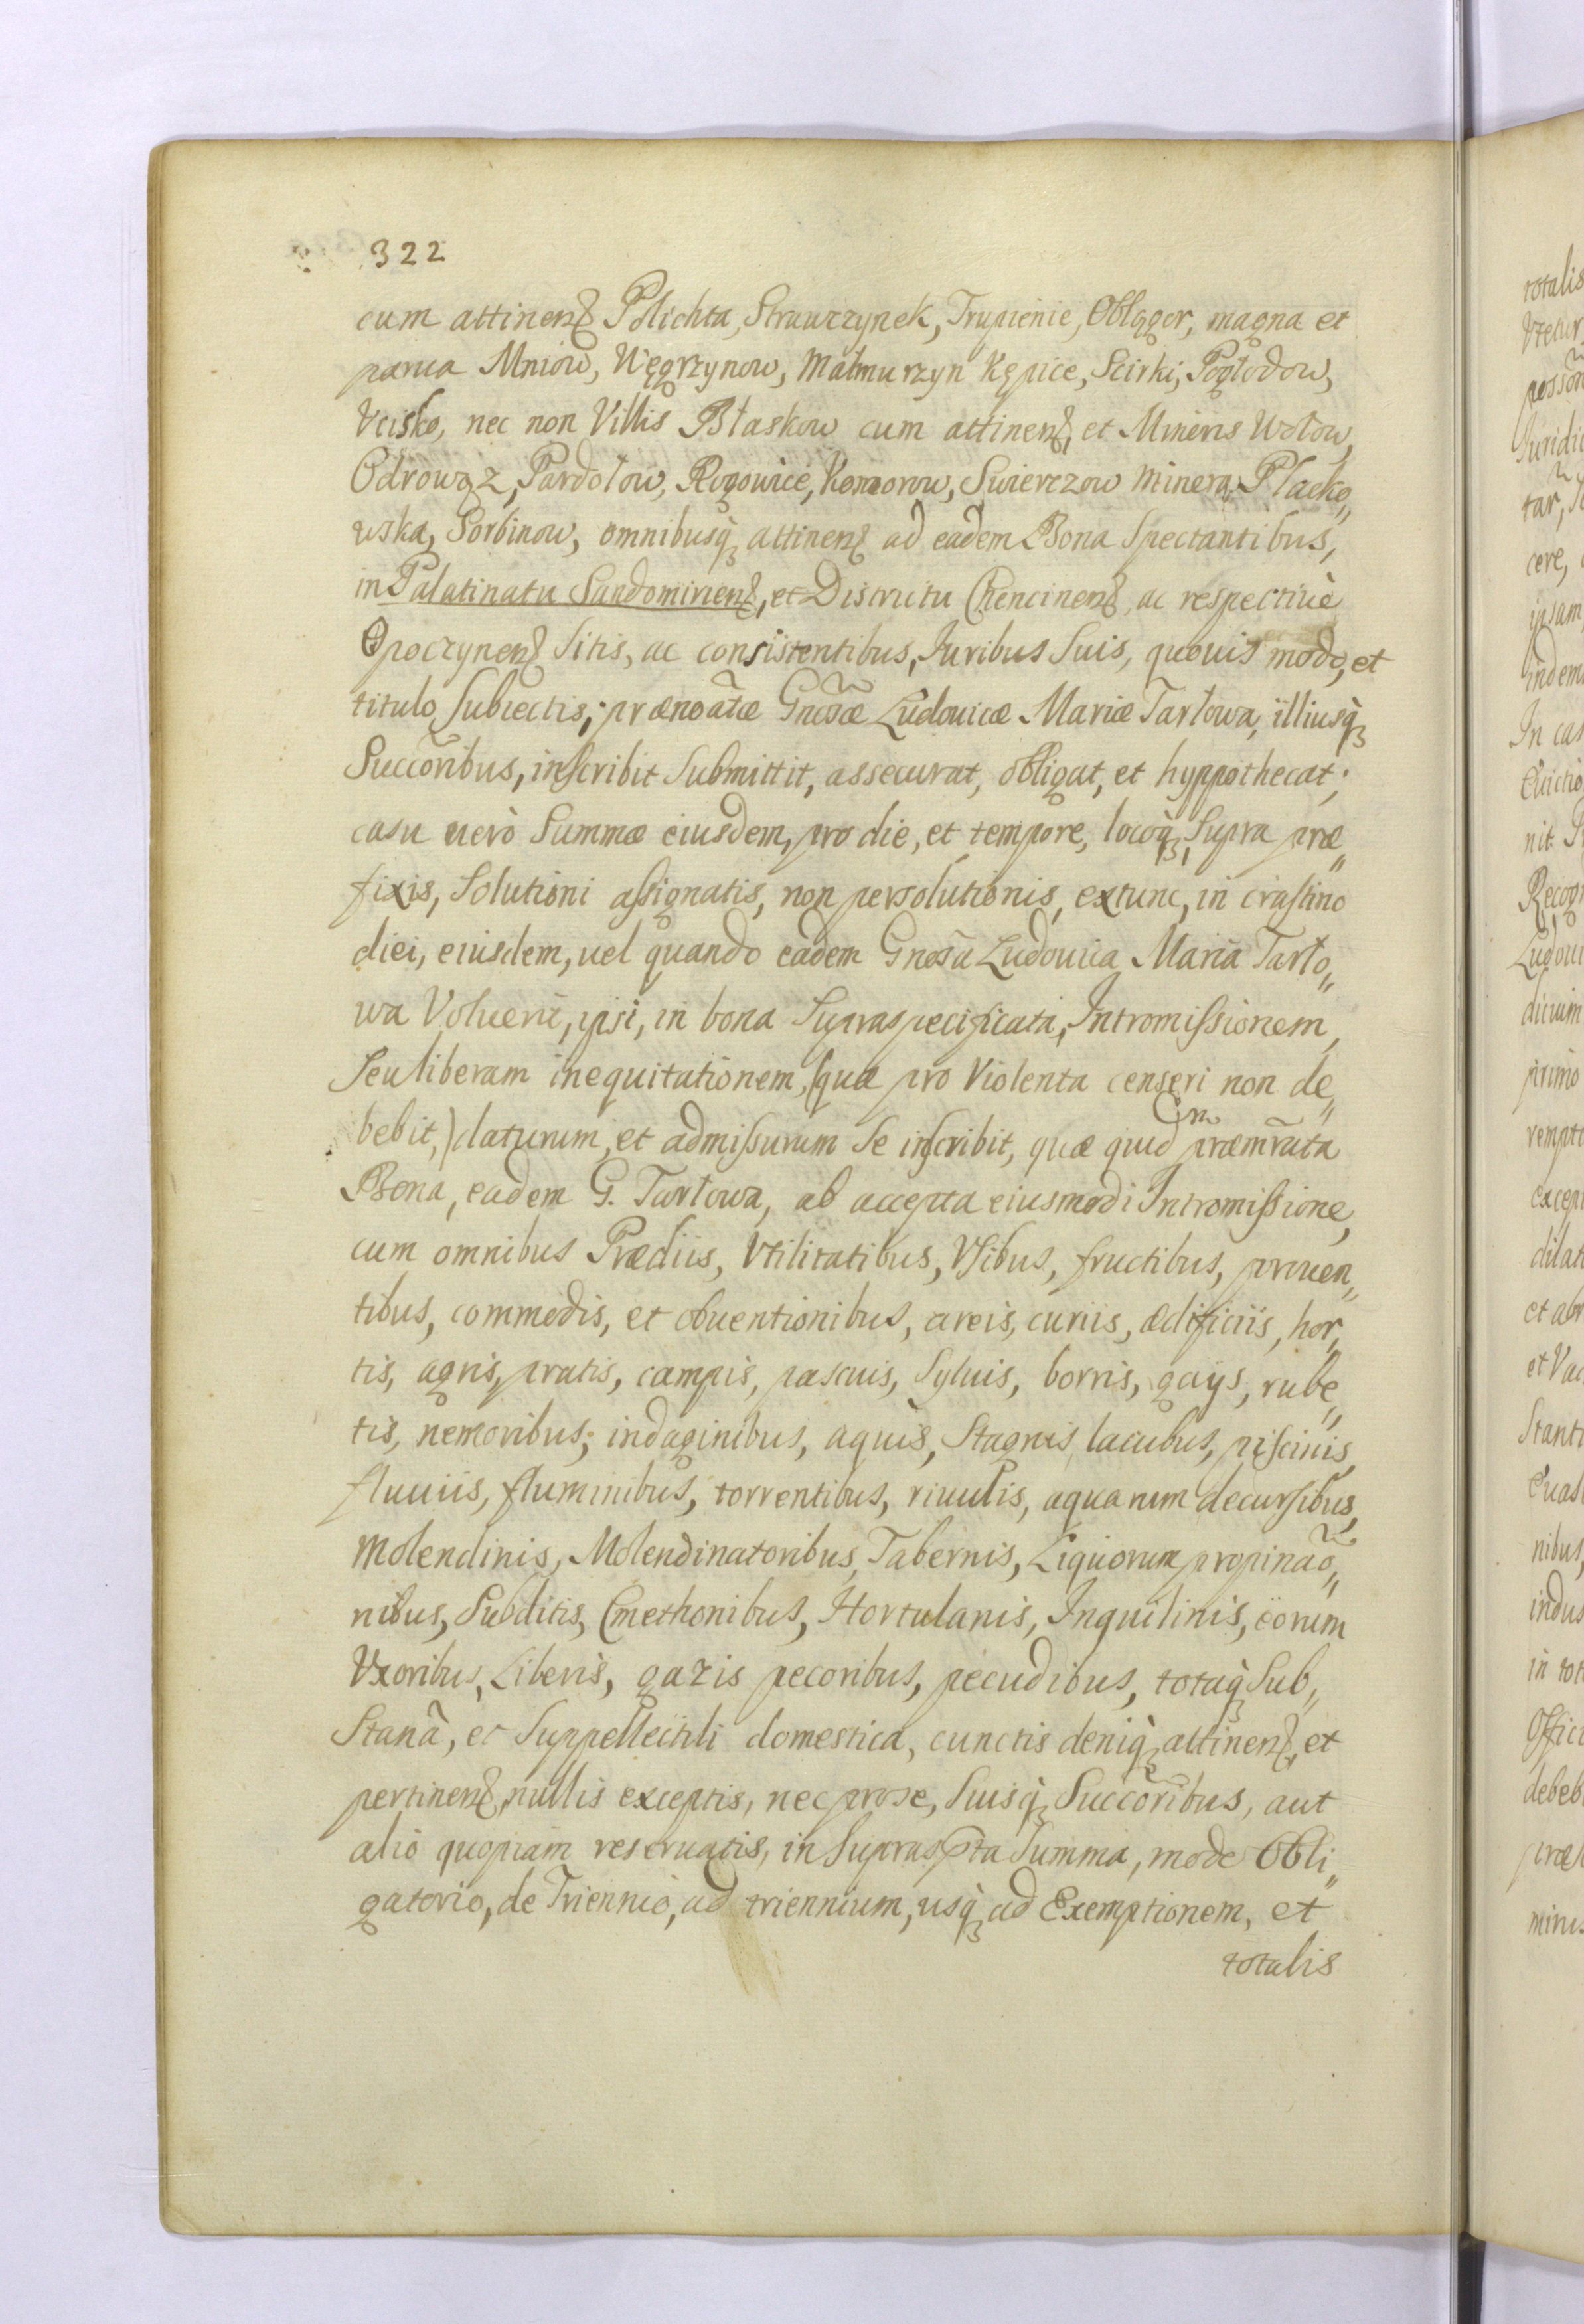 322
cum attinenʒ Polichta, Strawczynek, Trupienie, Oblągor, magna et
parua Mniow, Węgrzynow, Malmurzyn Kępice, Scirki, Pogłodow,
Vcisko, nec non Villis Błaskow cum attinenʒ, et Mineris Wołow,
Odrowąz, Pardołow, Rogowice, Komorow, Swierczow Minera Płacko„
wska, Sorbinow, omnibusqʒ attinenʒ ad eadem Bona Spectantibus,
in Palatinatu Sandomirienʒ, et Districtu Chencinenʒ, ac respectiuè
Opoczynenʒ Sitis, ac consistentibus, Iuribus Suis, quouis modo, et
titulo Subiectis; prænoãtæ Gnos̃æ Ludouicæ Mariæ Tarłowa, illiusqʒ
Succõribus, inscribit Submittit, assecurat, obligat, et hyppothecat;
casu uerò Summæ eiusdem, pro die, et tempore, locoqʒ Supra præ„
fixis, Solutioni assignatis, non persolutionis, extunc, in crastino
diei, eiusdem, uel quando eadem Gnos̃a Ludouica Maria Tarło„
wa Voluerit, ipsi, in bona Supraspecificata, Intromissionem,
Seu liberam inequitationem, (quæ pro Violenta censeri non de„
bebit,) daturum, et admissurum Se inscribit, quæ quid præmr̃ata
Bona, eadem G. Tarłowa, ab accepta eiusmodi Intromissione,
cum omnibus Prædiis, Vtilitatibus, Vsibus, fructibus, prouen„
tibus, commodis, et obuentionibus, areis, curiis, ædificiis, hor„
tis, agris, pratis, campis, pascuis, Syluis, borris, gays, rube„
tis, nemoribus; indaginibus, aquis, Stagnis, lacubus, piscinis,
fluuiis, fluminibus, torrentibus, riuulis, aquarum decursibus,
Molendinis, Molendinatoribus, Tabernis, Liquorum propinaõ„
nibus, Subditis, Cmethonibus, Hortulanis, Inquilinis, eorum
Vxoribus, Liberis, gazis pecoribus, pecudibus, totaqʒ Sub„
Stanã, et Suppellectili domestica, cunctis deniqʒ attinenʒ, et
pertinenʒ, nullis exceptis, nec pro se, Suisqʒ Succõribus, aut
alio quopiam reseruatis, in Suprasp̃ta Summa, modo Obli„
gatorio, de Triennio, ad triennium, usqʒ ad Exemptionem, et
totalis